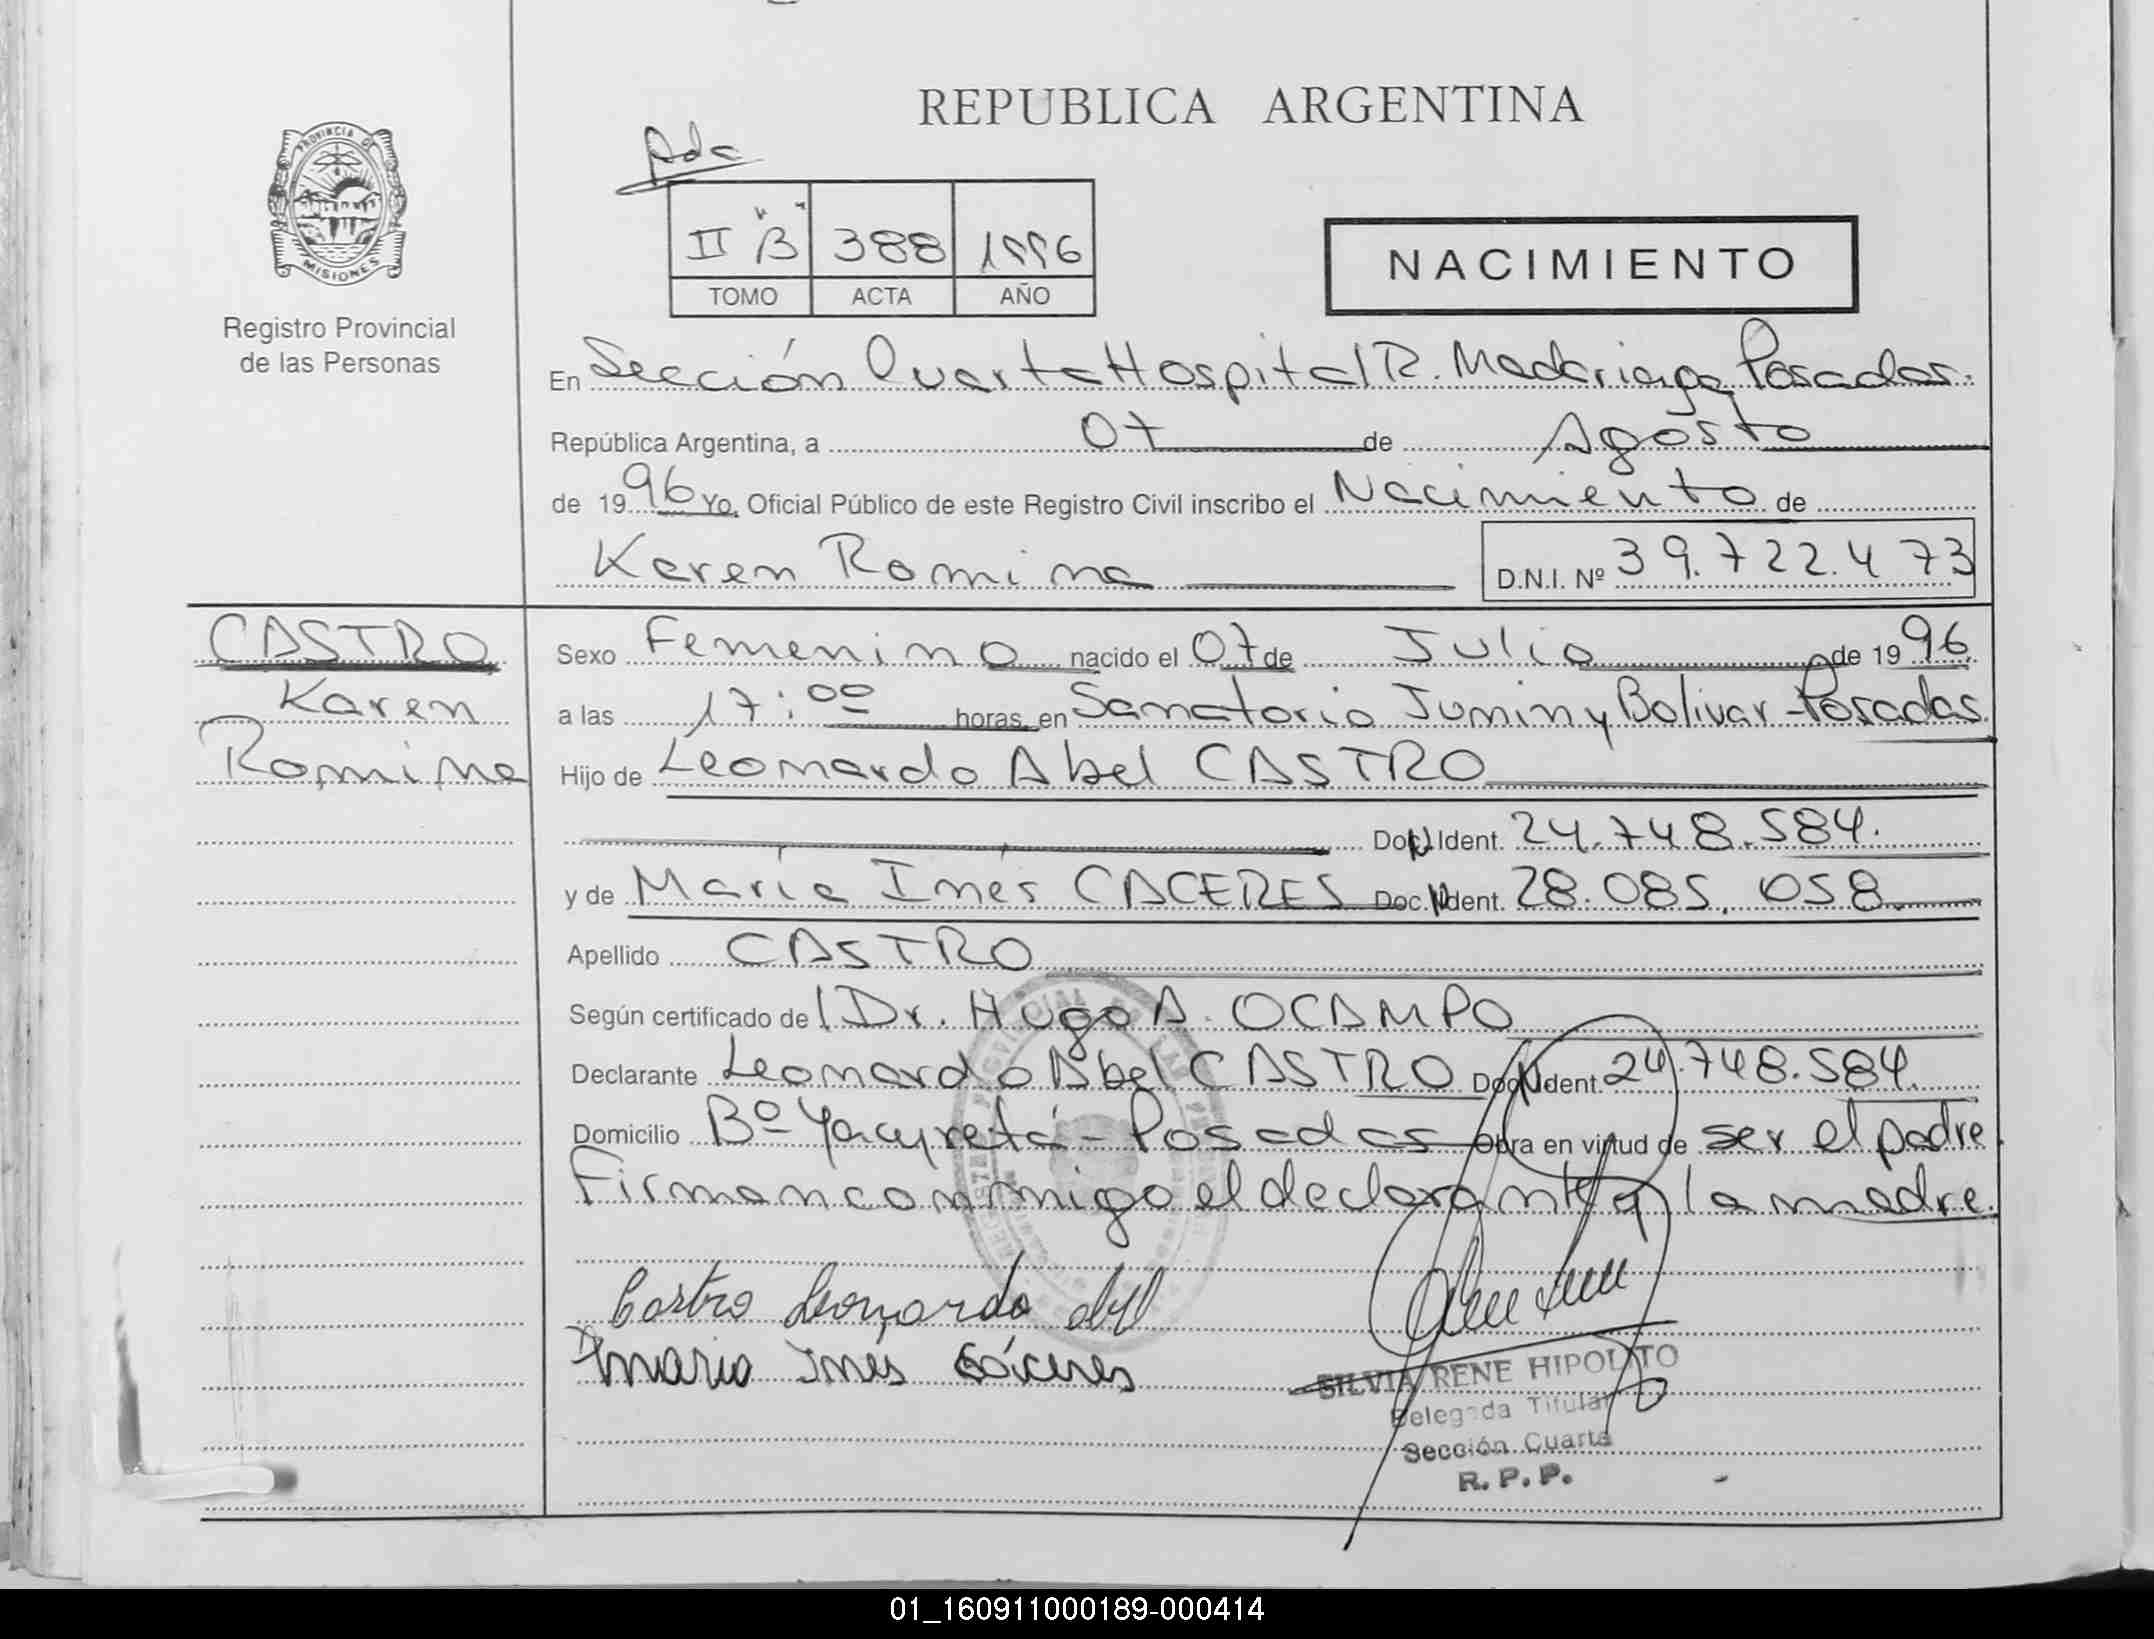 REPUBLICA ARGENTINA
PROVINCIA DE
MISIONES
Registro Provincial
de las Personas
Pdas
II "B" 388 1996
TOMO ACTA AÑO
NACIMIENTO
En Sección Cuarta Hospital R. Madariaga Posadas.
República Argentina, a 07 de Agosto
de 1996 Yo, Oficial Público de este Registro Civil inscribo el Nacimiento de
Karen Romina D.N.I. Nº 39.722.473
CASTRO
Karen
Romina
Sexo Femenino nacido el 07 de Julio de 1996
a las 17:00 horas, en Sanatorio Junin y Bolivar - Posadas.
Hijo de Leonardo Abel CASTRO
Doc. Ident. 24.748.584.
y de María Inés CACERES Doc. Ident. 28.085.058
Apellido CASTRO
Según certificado de l Dr. Hugo A. OCAMPO
Declarante Leonardo Abel CASTRO Doc. Ident. 24.748.584.
Domicilio Bº Yacyretá - Posadas Obra en virtud de ser el padre.
Firman conmigo el declarante y la madre.
Castro Leonardo Abel
Maria Ines Cáceres
SILVIA RENE HIPOLITO
Delegada Titular
Sección Cuarta
R. P. P.
01_160911000189-000414